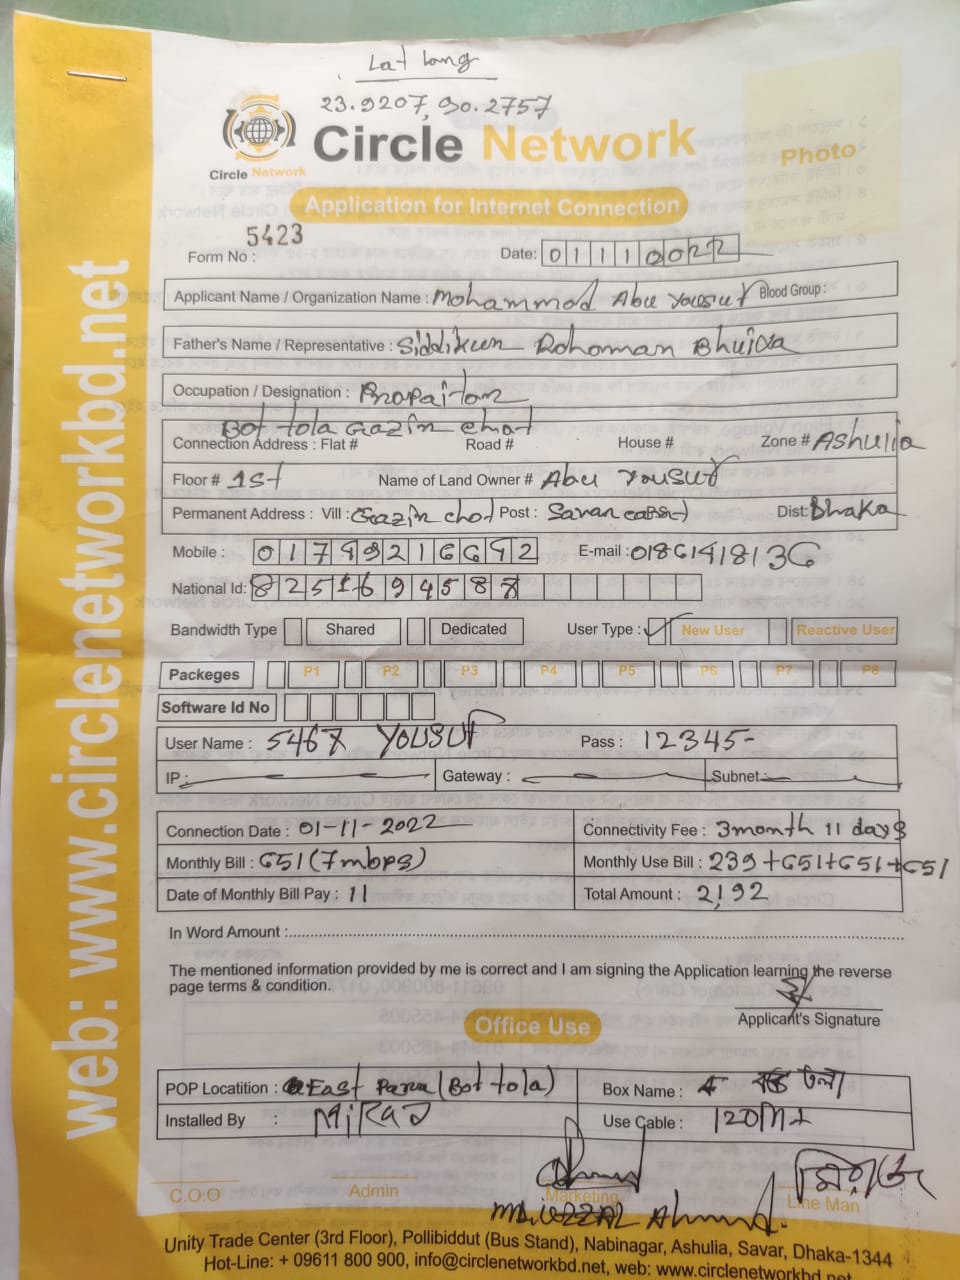 Lat Long
23.9207, 90.2757
Circle Network
Circle Network
Photo
Application for Internet Connection
5423
Form No :
Date: 01110022
Applicant Name / Organization Name : Mohammod Abu Yousuf Blood Group :
Father's Name / Representative : Siddikun Rohoman Bhuiya
Occupation / Designation :
Bot tola Gazir chat
Connection Address : Flat # Road # House # Zone # Ashulia
Floor # 1st Name of Land Owner # Abu Yousuf
Permanent Address : Vill : Gazir chat Post : Savar Dist: Dhaka
Mobile : E-mail : 01861418136
National Id: 8251694588
Bandwidth Type Shared Dedicated User Type : New User Reactive User
Packeges P1 P2 P3 P4 P5 P6 P7 P8
Software Id No
User Name : Yousuf Pass : 12345-
IP : Gateway : Subnet
Connection Date : 01-11-2022 Connectivity Fee : 3month 11 days
Monthly Bill : 651 (7mbps) Monthly Use Bill : 239+651+651+651
Date of Monthly Bill Pay : 11 Total Amount : 2,192
In Word Amount :
The mentioned information provided by me is correct and I am signing the Application learning the reverse
page terms & condition.
Applicant's Signature
Office Use
POP Locatition : East Para (Bot tola) Box Name : বট তলা
Installed By : MiRaJ Use Cable : 120Mt
C.O.O Admin Marketing Line Man
মিরাজ
MD. UZZAL Ahmed.
Unity Trade Center (3rd Floor), Pollibiddut (Bus Stand), Nabinagar, Ashulia, Savar, Dhaka-1344
Hot-Line: + 09611 800 900, info@circlenetworkbd.net, web: www.circlenetworkbd.net
web: www.circlenetworkbd.net